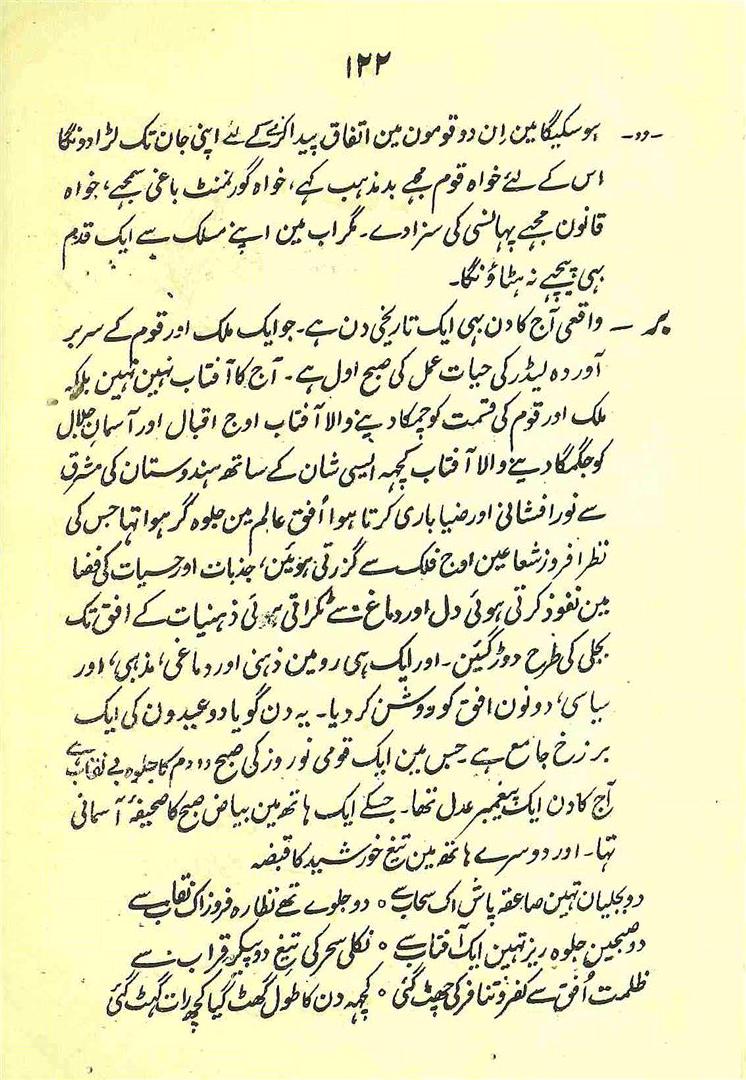 ۱۲۲
-دد- ہوسکیگا مین اِن دو قومون مین اتفاق پیدا کرنے کے لئے اپنی جان تک لڑا دونگا
اس کے لئے خواہ قوم مجہے بد مذہب کہے، خواہ گورنمنٹ باغی سمجہے، خواہ
قانون مجہے پہانسی کی سزا دے۔ مگر اب مین اپنے مسلک سے ایک قدم
بہی پیچہے نہ ہٹاؤنگا۔
بر — واقعی آج کا دن بہی ایک تاریخی دن ہے۔ جو ایک ملک اور قوم کے سر بر
آوردہ لیڈر کی حیات عمل کی صبح اول ہے۔ آج کا آفتاب نہین نہین بلکہ
ملک اور قوم کی قسمت کو چمکا دینے والا آفتاب اوج اقبال اور آسمان جلال
کو جگمگا دینے والا آفتاب کچہہ ایسی شان کے ساتھ ہندوستان کی مشرق
سے نور افشانی اور ضیا باری کرتا ہوا اُفق عالم مین جلوہ گر ہوا تہا جس کی
نظر افروز شعاعین اوج فلک سے گزرتی ہوئین، جذبات اور حسیات کی فضا
مین نفوذ کرتی ہوئی دل اور دماغ سے ٹکراتی ہوئی ذہنیات کے افق تک
بجلی کی طرح دوڑ گئین۔ اور ایک ہی رو مین ذہنی اور دماغی، مذہبی، اور
سیاسی، دونون افق کو روشن کر دیا۔ یہ دن گویا دو عیدون کی ایک
برزخ جامع ہے۔ جس مین ایک قومی نوروز کی صبح دوم کا جلوہ بے نقاب ہے
آج کا دن ایک پیغمبر عدل تھا۔ جسکے ایک ہاتھ مین بیاض صبح کا صحیفۂ آسمانی
تہا۔ اور دوسرے ہاتھ مین تیغ خورشید کا قبضہ
دو بجلیان تہین صاعقہ پاش اک سحاب سے ٥ دو جلوے تھے نظارہ فروز اک نقاب سے
دو صبحین جلوہ ریز تہین ایک آفتاب سے ٥ نکلی سحر کی تیغ دو پیکر قراب سے
ظلمت اُفق سے کفر و تنافر کی چھٹ گئی ٥ کچہہ دن کا طول گھٹ گیا کچھ رات گہٹ گئی